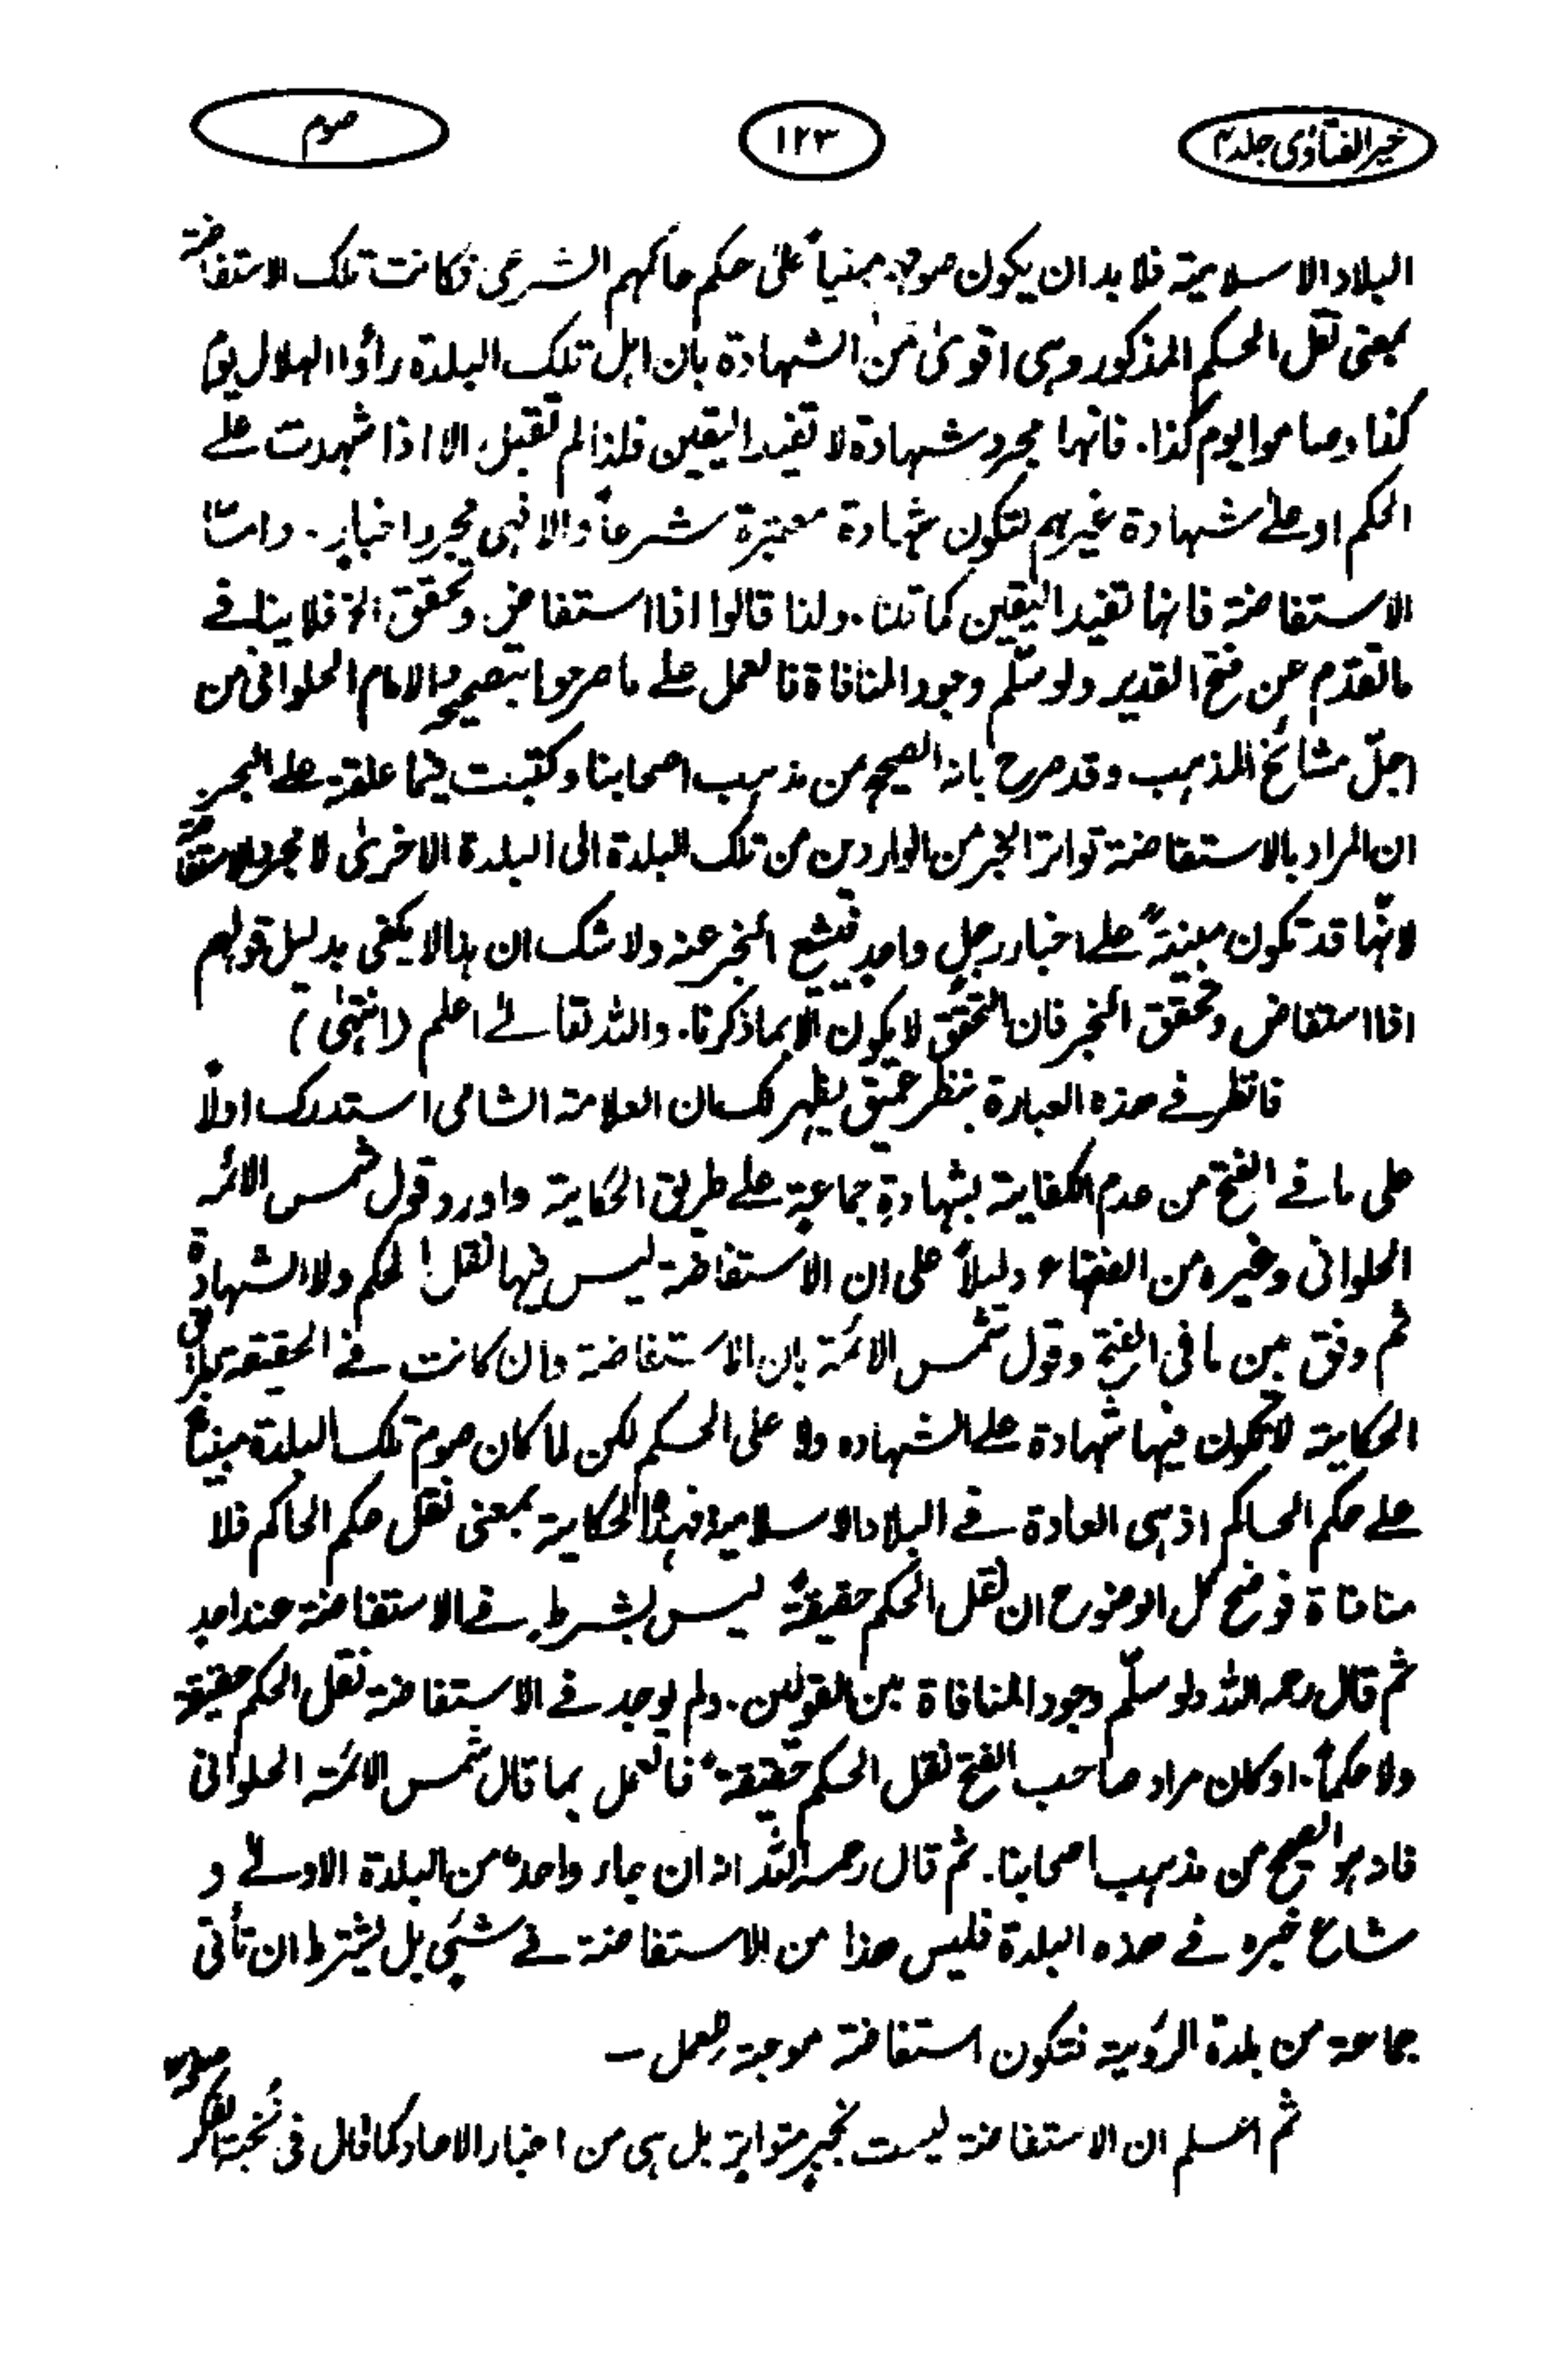 خیر الفتاوٰی جلد ۴
۱۲۳
صوم
البلاد الاسلامیة فلا بد ان یکون صومہم مبنیاً علیٰ حکم حاکمہم الشرعی فکانت تلک الاستفاضة
بمعنی نقل الحکم المذکور وہی اقویٰ من الشہادة بأن اہل تلک البلدة رأوا الہلال یوم
کذا وصاموا یوم کذا. فانہا مجرد شہادة لا تفید الیقین فلذا لم تقبل الا اذا شہدت علے
الحکم او علےٰ شہادة غیرہم لتکون شہادة معتبرة شرعاً والا فہی مجرد اخبار. وامّا
الاستفاضة فانہا تفید الیقین کما قلنا. ولذا قالوا اذا استفاض وتحقق الخ فلا ینافے
ما تقدّم عن فتح القدیر ولو سلّم وجود المنافاة فالعمل علے ما صرحوا بتصحیحہ والامام الحلوانی من
اجلّ مشائخ المذہب وقد صرح بانہ الصحیح من مذہب اصحابنا وکتبت فیما علقتہ علے البحر
ان المراد بالاستفاضة تواتر الخبر من الواردین من تلک البلدة الی البلدة الاخریٰ لا مجرد الاستفاضة
لانّہا قد تکون مبنیةً علے اخبار رجل واحد فیشیع الخبر عنہ ولا شک ان ہذا لا یکفی بدلیل قولہم
اذا استفاض وتحقق الخبر فان التحقق لا یکون الّا بما ذکرنا. واللہ تعالےٰ اعلم (انتہیٰ)
فانظر فے ھذہ العبارة بنظر عمیق یظہر لک ان العلامة الشامی استدرک اولاً
علی ما فے الفتح من عدم الکفایة بشہادة جماعةٍ علے طریق الحکایة واورد قول شمس الائمہ
الحلوانی وغیرہ من الفقہاء دلیلاً علی ان الاستفاضة لیس فیہا نقل الحکم ولا الشہادة
ثم وفق بین ما فی الفتح وقول شمس الائمة بان الاستفاضة وان کانت فے الحقیقة
الحکایة لا تکون فیہا شہادة علے الشہادہ ولا علی الحکم لکن لما کان صوم تلک البلدة مبنیاً
علے حکم الحاکم اذ ہی العادة فے البلاد الاسلامیة فہذہ الحکایة بمعنی نقل حکم الحاکم فلا
منافاة فوضح کل الوضوح ان نقل الحکم حقیقةً لیس بشرطٍ فے الاستفاضة عند احد
ثم قال رحمہ اللہ ولو سلّم وجود المنافاة بین القولین. ولم یوجد فے الاستفاضة نقل الحکم حقیقة
ولا حکماً. او کان مراد صاحب الفتح نقل الحکم حقیقةً فالعمل بما قال شمس الائمة الحلوانی
فانہ ہو الصحیح من مذہب اصحابنا. ثم قال رحمہ اللہ انہ ان جاء واحدٌ من البلدة الاولےٰ و
شاع خبرہ فے ھذہ البلدة فلیس ھذا من الاستفاضة فے شیٔ بل یشترط ان تأتی
جماعة من بلدة الرؤیة فتکون استفاضة موجبة للعمل ۔
ثم اعلم ان الاستفاضة لیست بخبر متواترٍ بل ہی من اخبار الاحاد کما قال فی نُخبة الفکر